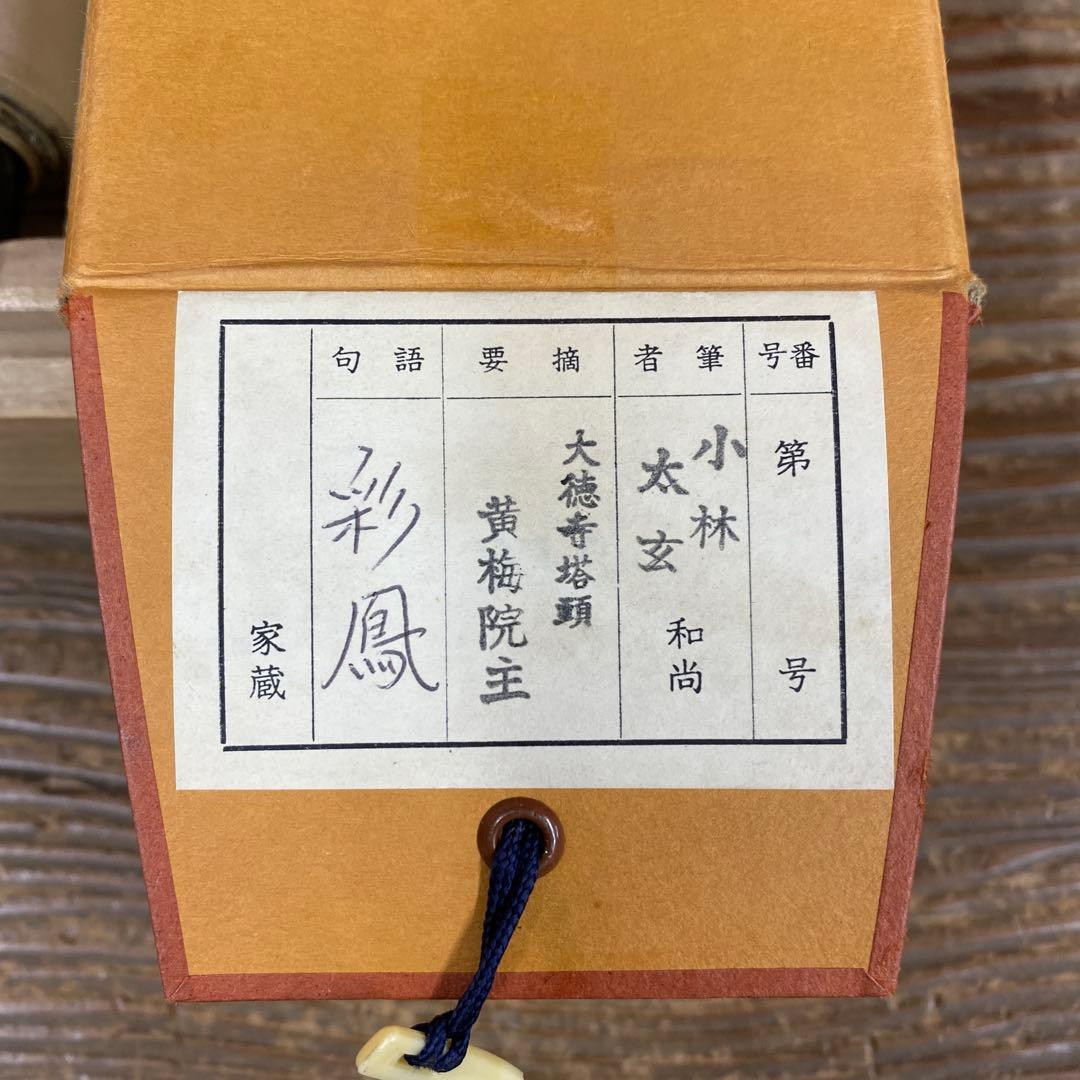 番号
第　号
筆者
小林
太玄
和尚
摘要
大徳寺塔頭
黄梅院主
語句
彩鳳
家蔵